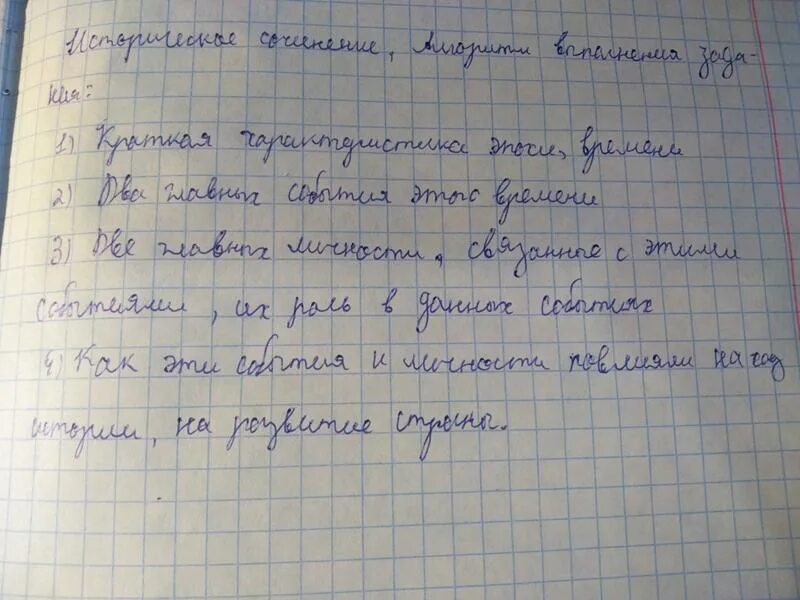 Историческое сочинение, Алгоритм выполнения зада-
ния:
1) Краткая характеристика эпохи, времени
2) Два главных события этого времени
3) Две главных личности, связанные с этими
событиями, их роль в данных событиях
4) Как эти события и личности повлияли на ход
истории, на развитие страны.